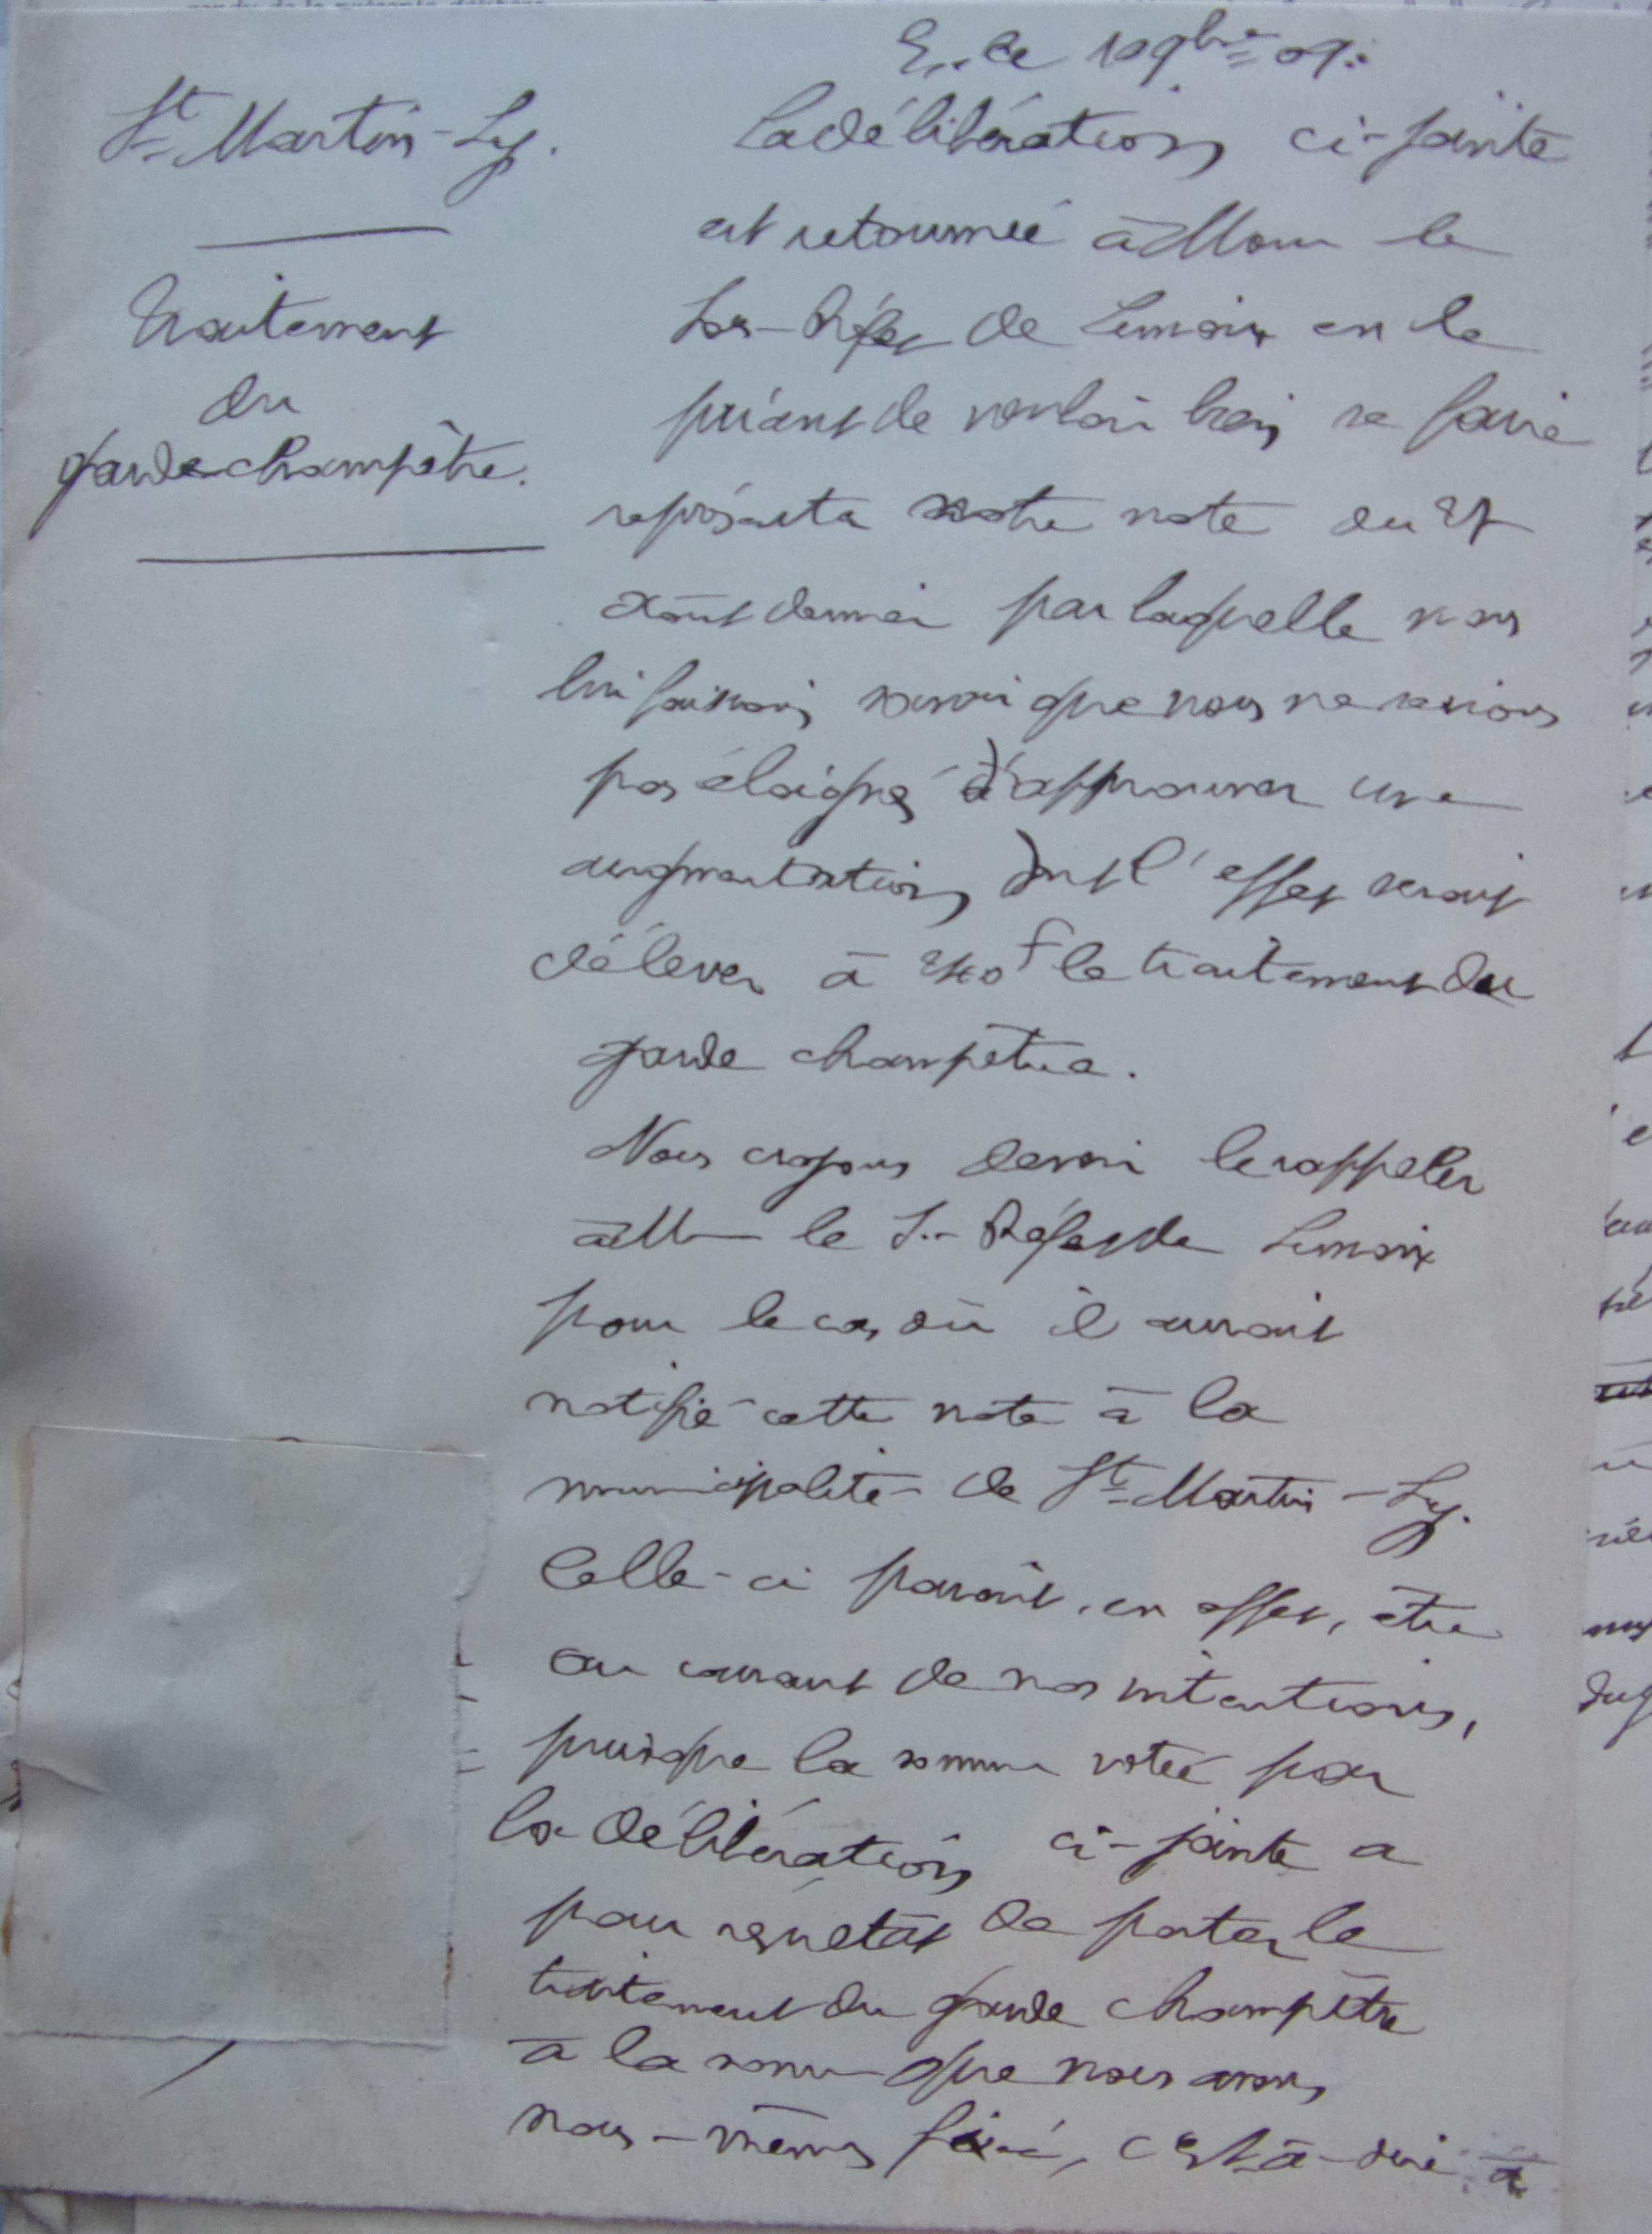 St Martin-Lys.
Traitement
du
garde champêtre.
E. le 10 9bre 07.
La délibération ci-jointe
est retournée à Monsr le
Sous-Préfet de Limoux en le
priant de vouloir bien se faire
représenter notre note du 27
août dernier par laquelle nous
lui faisions savoir que nous ne serions
pas éloigné d'approuver une
augmentation dont l'effet serait
d'élever à 240f le traitement du
garde champêtre.
Nous croyons devoir le rappeler
à M le S.-Préfet de Limoux
pour le cas où il aurait
notifié cette note à la
municipalité de St Martin-Lys.
Celle-ci parait, en effet, être
au courant de nos intentions,
puisque la somme votée par
la délibération ci-jointe a
pour résultat de porter le
traitement du garde champêtre
à la somme que nous avons
nous-mêmes fixé, c'est-à-dire à